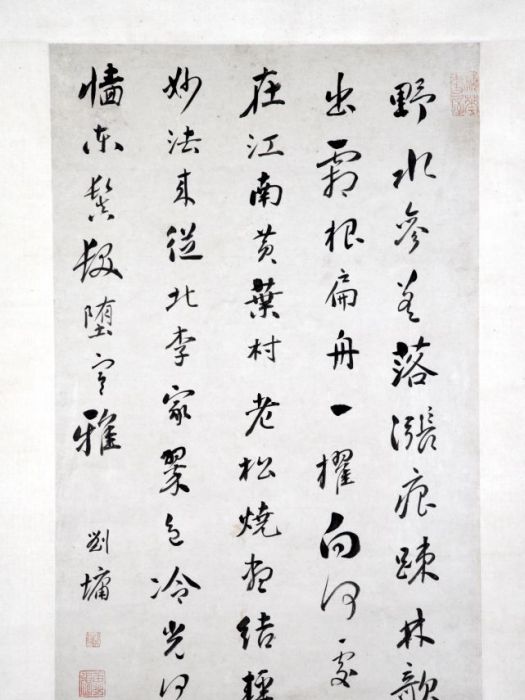 野水參差落漲痕疎林欹
出霜根扁舟一櫂向何處
在江南黃葉村老松燒盡結輕
妙法來從北李家翠色冷光何
墻東鬢髮墮寒雅
劉墉